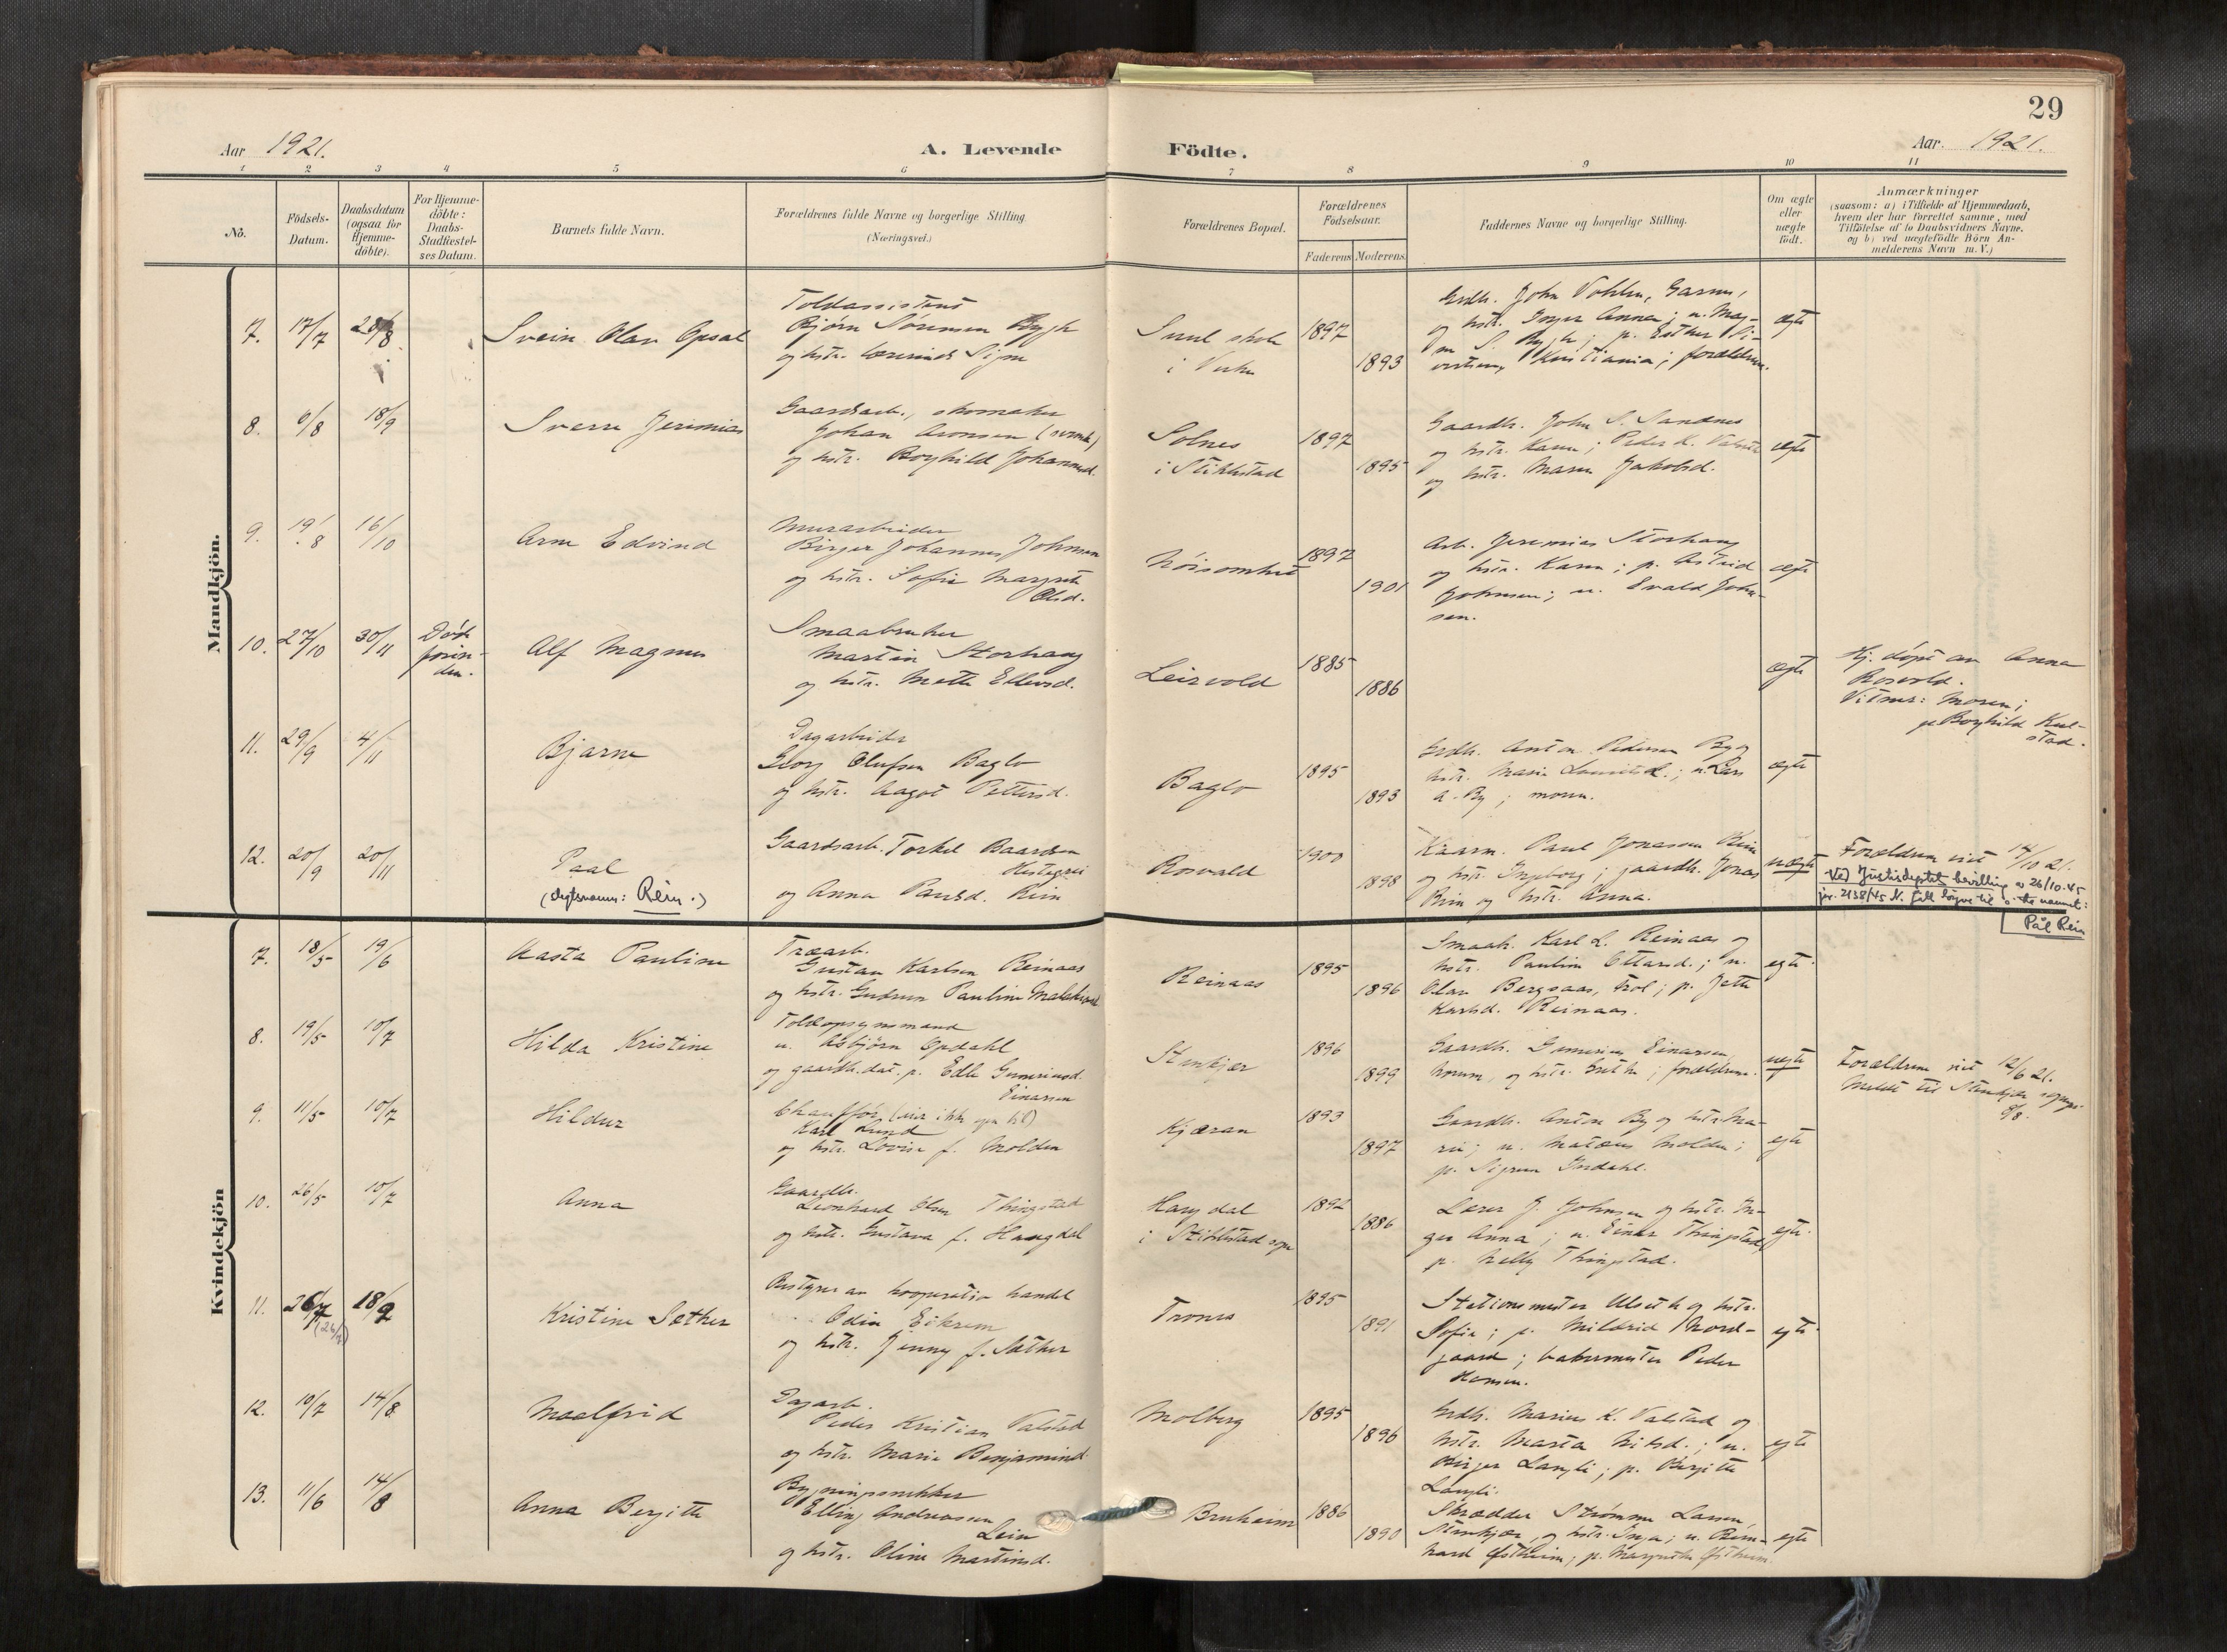 29
Aar 1921.
A. Levende
Födte.
Aar. 1921.
1 2 3 4 5 6 7 8 9 10 11
No.
Födsels-
Datum.
Daabsdatum
(ogsaa for
Hjemme-
döbte).
For Hjemme-
döbte:
Daabs-
Stadfæstel-
ses Datum.
Barnets fulde Navn.
Forældrenes fulde Navne og borgerlige Stilling.
(Næringsvei.)
Forældrenes Bopæl.
Forældrenes
Födselsaar.
Faderens Moderens
Faddernes Navne og borgerlige Stilling.
Om ægte
eller
uægte
födt.
Anmærkninger
(saasom: a) i Tilfælde af Hjemmedaab,
hvem der har forrettet samme, med
Tilföielse af to Daabsvidners Navne,
og b) ved uægtefödte Börn An-
melderens Navn m. V.)
Mandkjön.
7. 17/7 28/8 Svein Olav Opsal
Toldassistent
Bjørn Sørensen Bygh
og hstr. lærerinde Signe
i
1897
1893
Grdbr. John
og hstr. Inger Anna; u. Mag-
Kristiania; forældrene.
ægte
8. 9/8 18/9 Sverre Jeremias
Gaardarb., skomaker
Johan Aronsen (svensk)
og hstr. Borghild Johannesd.
Solnes
i Stiklestad
1897
1895
Gaardbr. John S. Sandnes
og hstr. Karen; Peder K. Valstad
og hstr. Maren Jakobsd.
ægte
9. 19/8 16/10 Arne Edvind
Murarbeider
Birger Johannes Johnsen
og hstr. Sofie Margrete
Olsd.
Nöisomhet
1897
1901
Arb. Jeremias Storhaug
og hstr. Karen; p. Astrid
Johnsen; u. Evald John-
sen.
ægte
10. 27/10 30/11
Död
forin-
den.
Alf Magnus
Smaabruker
Martin Storhaug
og hstr. Mette Ellevsd.
Leirvold
1885
1886
ægte
Hj. döpt av Anna
Rosvold.
Vitner: Moren;
p. Borghild Kul-
stad.
11. 29/9 4/11 Bjarne
Dagarbeider
Georg Olufsen Baglo
og hstr. Aagot Pettersd.
Baglo
1895
1893
Grdbr. Anton Pedersen By og
hstr. Marie Lauritsd.; u. Lars
A. By; moren.
ægte
12. 20/9 20/11 Paal
(slegtsnavn: Rein.)
Gaardsarb. Torkel Baardsen
og Anna Paulsd. Rein
Rosvold
1900
1898
Kaarm. Paul Jonassen Rein
og hstr. Ingeborg; gaardbr. Jonas
Rein og hstr. Anna.
uægte
Forældrene viet 14/10 21.
Ved Justisdeptet bevilling av 26/10-45
jnr. 2138/45 N. fått löyve til å ta navnet:
Pål Rein
Kvindekjön
7. 18/5 19/6 Aasta Pauline
Træarb.
Gustav Karlsen Reinaas
og hstr. Gudrun Pauline
Reinaas
1895
1896
Smaabr. Karl L. Reinaas og
hstr. Pauline Ottarsd.; u.
Olav Bergsaas, Frol; p. Jette
Karlsd. Reinaas.
egte
8. 19/5 10/7 Hilda Kristine
Toldopsynsmand
u. Asbjörn Opdahl
og gaardbr.dat. p. Edle
Einarsen
Stenkjær
1896
1899
Gaardbr. Einarsen
og hstr. forældrene.
uegte
Forældrene viet 12/6 21.
Meldt til Stenkjær
9. 11/5 10/7 Hildur
Chauffför
Karl Lund
og hstr. Lovise f. Molden
Kjæran
1893
1897
Gaardbr. Anton By og hstr. Ma-
rie; u. Molden;
p. Sigrun
egte
10. 26/5 10/7 Anna
Gaardbr.
Leonhard Olsen Thingstad
og hstr. Gustava f. Haugdal
Haugdal
i Stiklestad sogn
1892
1886
Lærer J. Johnsen og hstr. In-
ger Anna; u. Einar Thingstad,
p. Nelly Thingstad.
egte
11. 26/7 18/9
(26/7)
Kristine Sæther
Bestyrer av kooperativ handel
Odin Eikrem
og hstr. Jenny f. Sæther
Trones
1895
1891
Stationsmester Ulseth og hstr.
Sofie; p. Mildrid Nord-
gaard; bakermester Peder
Hansen.
egte
12. 10/7 14/8 Maalfrid
Dagarb.
Peder Kristian Valstad
og hstr. Marie Benjaminsd.
Molberg
1895
1896
Grdbr. Marius K. Valstad og
hstr. Marta Nilsd.; u.
Birger Langli; p. Bergitte
Langli.
egte
13. 11/6 14/8 Anna Bergitte
Bygningssnekker
Elling Andreassen
Lein
og hstr. Oline Martinsd.
Bruheim
1886
1890
Skrædder Strømme Larsen,
Stenkjær, og hstr. Inga; u. Bern-
hard Østheim; p. Margrethe Østheim.
egte